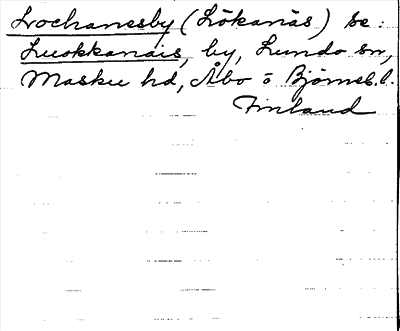 Lochanesby (Lökanäs) se:
Luokkanais, by, Lundo sn,
Masku hd, Åbo o Björneb. l.
Finland